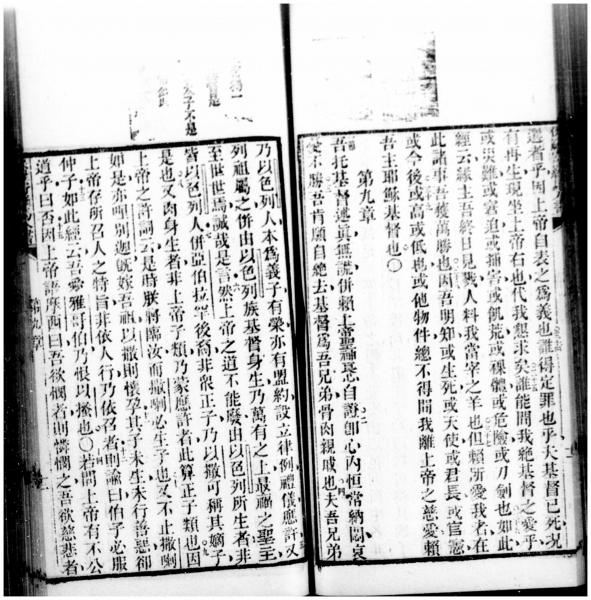 選者乎因上帝自表之爲義也誰得定罪也乎夫基督已死況
有再生現坐上帝右也代我懇求矣誰能間我絶基督之愛乎
或災難或窘迫或捕害或飢荒或裸體或危險或刀劍也如此
經云緣主吾終日見戮人料我當宰之羊也但賴所愛我者在
此諸事吾獲萬勝也因吾明知或生死或天使或君長或官憲
或今後或高或低也或他物件總不得間我離上帝之慈愛賴
吾主耶穌基督也〇
第九章
吾托基督述眞無謊併賴上帝聖風自證卽心內恒常納悶哀
不勝吾肯願自絶去基督爲吾兄弟骨肉親戚也夫吾兄弟
乃以色列人本爲義子有榮亦有盟約設立律例禮儀應許又
列祖屬之併出以色列族基督身生乃萬有之上最福之聖主
至世世焉誠哉是言然上帝之道不能廢出以色列所生者非
皆以色列人併亞伯拉罕後裔非衆正子乃以撒可稱其嫡子
是也又肉身生者非上帝子類乃蒙應許者此算正子類也因
上帝之許詞云是時朕將臨汝而撒喇必生子也又不止撒喇
如是亦唎別迦旣嫁吾祖以撒則懷孕其子未生未行善惡卻
上帝存所召人之特旨非依人行乃依召者則諭曰伯子必服
仲子如此經云吾愛雅哥伯乃恨以掃也〇若問上帝有不公
道乎曰否因上帝語摩西曰吾欲憫者則憐憫之吾欲慈悲者
第九章